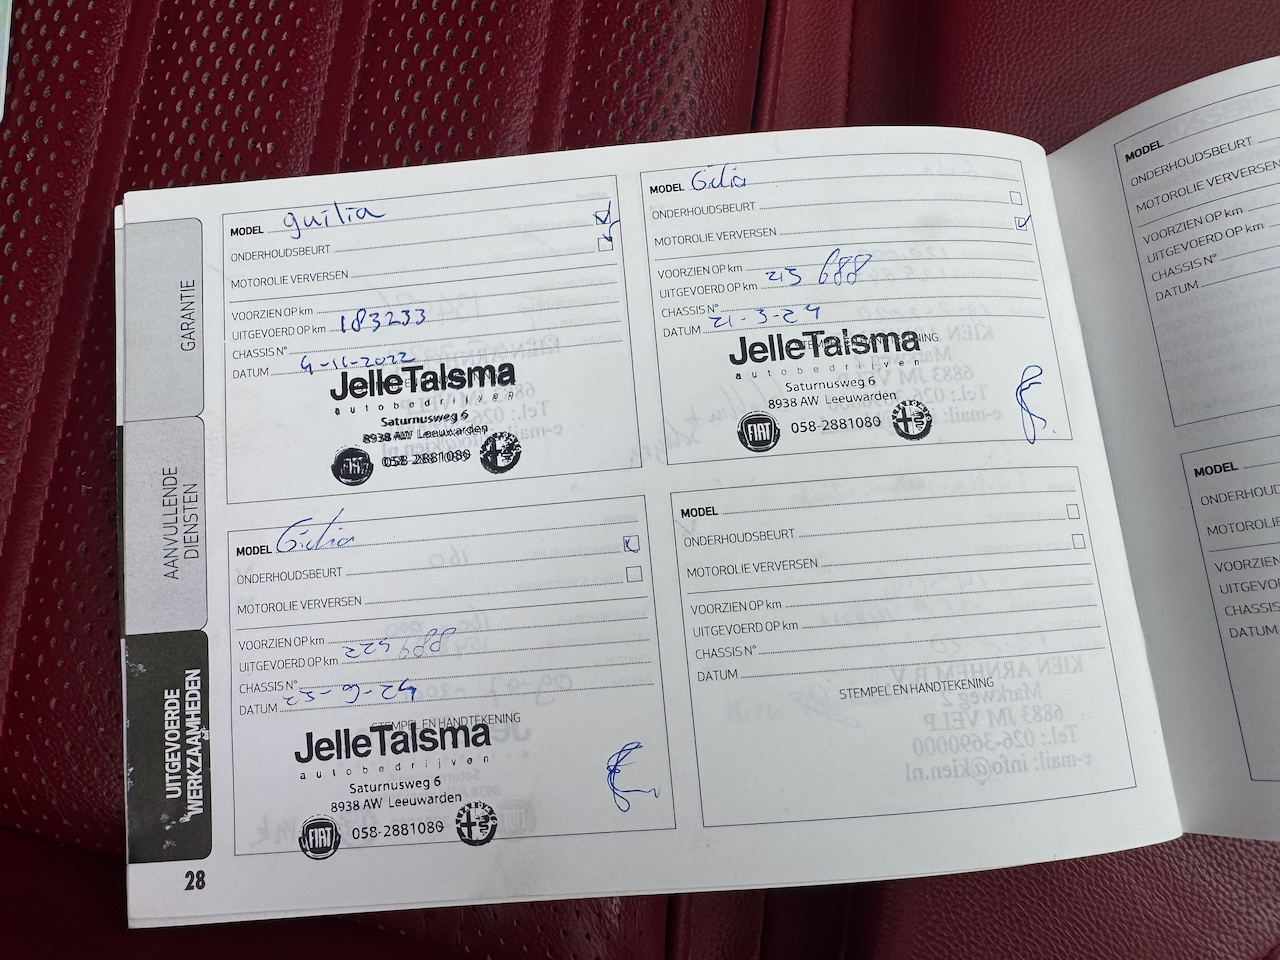 GARANTIE
AANVULLENDE
DIENSTEN
UITGEVOERDE
WERKZAAMHEDEN
MODEL guilia
ONDERHOUDSBEURT
MOTOROLIE VERVERSEN
VOORZIEN OP km
UITGEVOERD OP km 183233
CHASSIS N°
DATUM 4-11-2022
JelleTalsma
autobedrijven
Saturnusweg 6
8938 AW Leeuwarden
FIAT 058-2881080
MODEL Gulia
ONDERHOUDSBEURT
MOTOROLIE VERVERSEN
VOORZIEN OP km
UITGEVOERD OP km 215 688
CHASSIS N°
DATUM 21-3-24
STEMPEL EN HANDTEKENING
JelleTalsma
autobedrijven
Saturnusweg 6
8938 AW Leeuwarden
FIAT 058-2881080
MODEL Giulia
ONDERHOUDSBEURT
MOTOROLIE VERVERSEN
VOORZIEN OP km
UITGEVOERD OP km
CHASSIS N°
DATUM 25-9-24
STEMPEL EN HANDTEKENING
JelleTalsma
autobedrijven
Saturnusweg 6
8938 AW Leeuwarden
FIAT 058-2881080
MODEL
ONDERHOUDSBEURT
MOTOROLIE VERVERSEN
VOORZIEN OP km
UITGEVOERD OP km
CHASSIS N°
DATUM
STEMPEL EN HANDTEKENING
28
MODEL
ONDERHOUDSBEURT
MOTOROLIE VERVERSEN
VOORZIEN OP km
UITGEVOERD OP km
CHASSIS N°
DATUM
MODEL
ONDERHOUD
MOTOROLIE
VOORZIEN
UITGEVOER
CHASSIS
DATUM